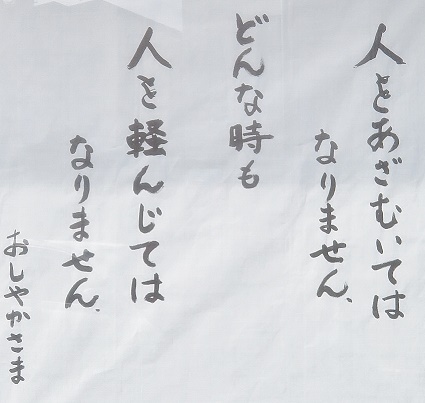 人をあざむいては
なりません、
どんな時も
人を軽んじては
なりません、
おしやかさま